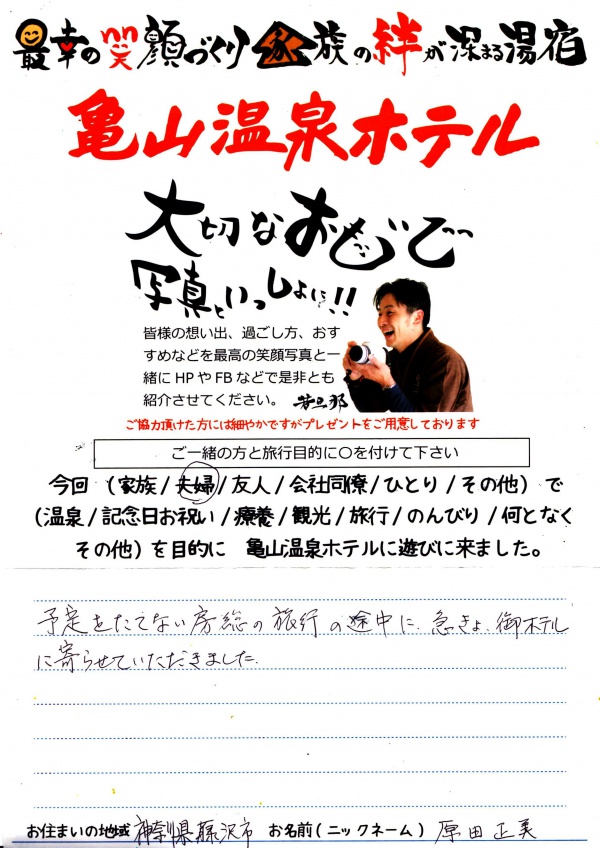 最幸の笑顔づくり 家族の絆が深まる湯宿
亀山温泉ホテル
大切なおもいで
写真といっしょに!!
皆様の想い出、過ごし方、おす
すめなどを最高の笑顔写真と一
緒にHPやFBなどで是非とも
紹介させてください。 若旦那
ご協力頂けた方には細やかですがプレゼントをご用意しております
ご一緒の方と旅行目的に〇を付けて下さい
今回 (家族/夫婦/友人/会社同僚/ひとり/その他) で
(温泉/記念日お祝い/療養/観光/旅行/のんびり/何となく
その他) を目的に 亀山温泉ホテルに遊びに来ました。
予定をたてない房総の旅行の途中に、急きょ、御ホテル
に寄らせていただきました。
お住まいの地域 神奈川県藤沢市 お名前(ニックネーム) 原田正美